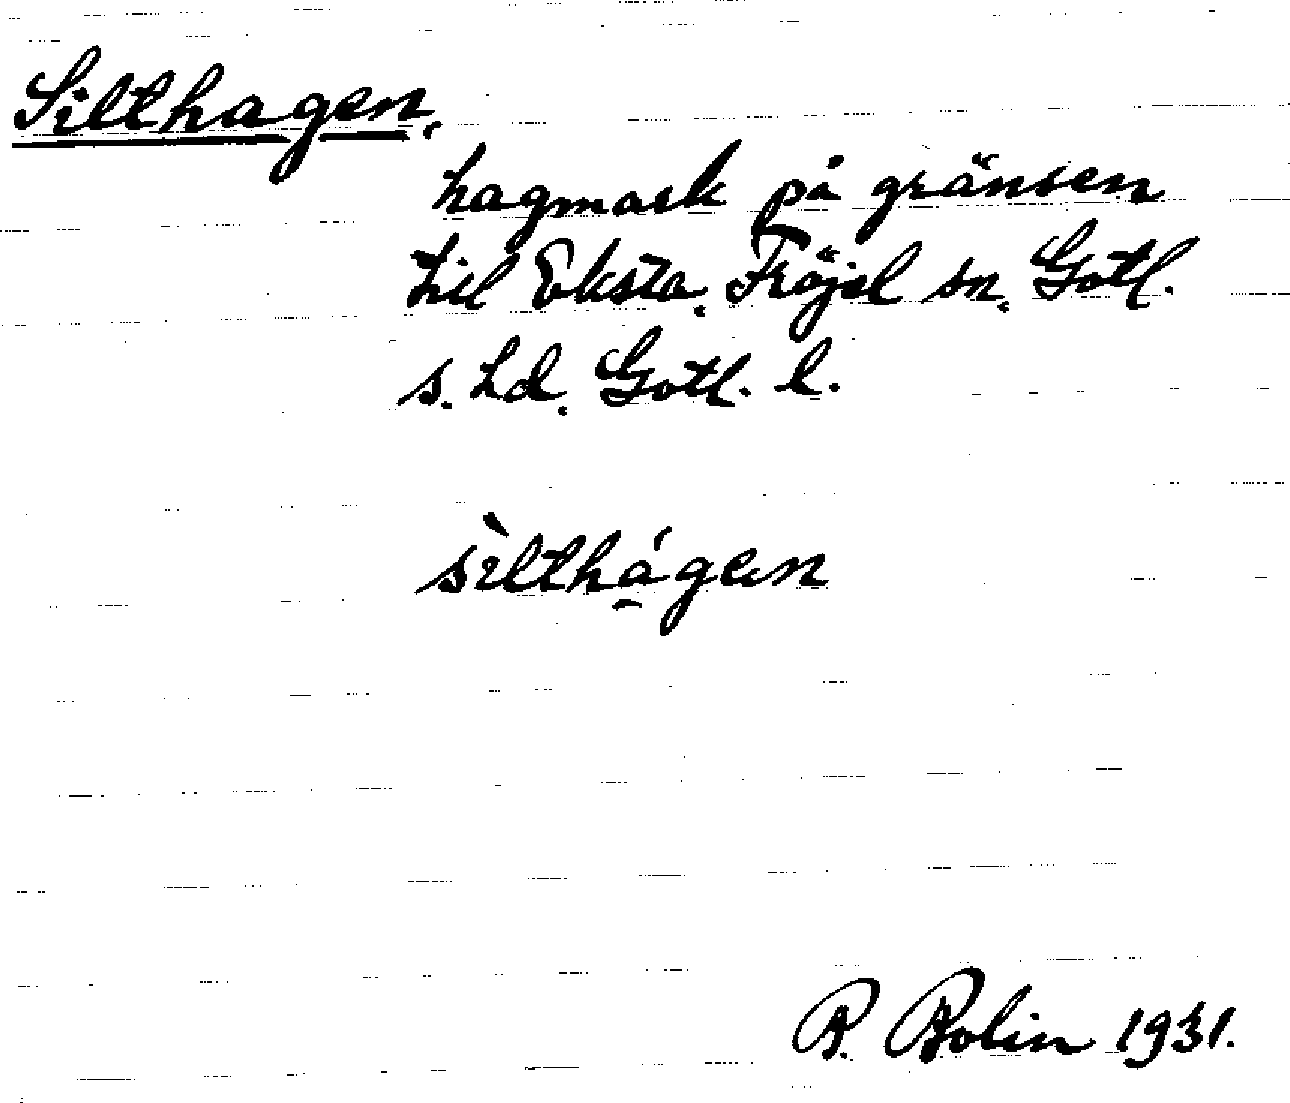 Silthagen.
hagmark på gränsen
till Eksta. Fröjel sn. Gotl.
s. hd. Gotl. l.
sìlthá̱gen
R. Bolin 1931.